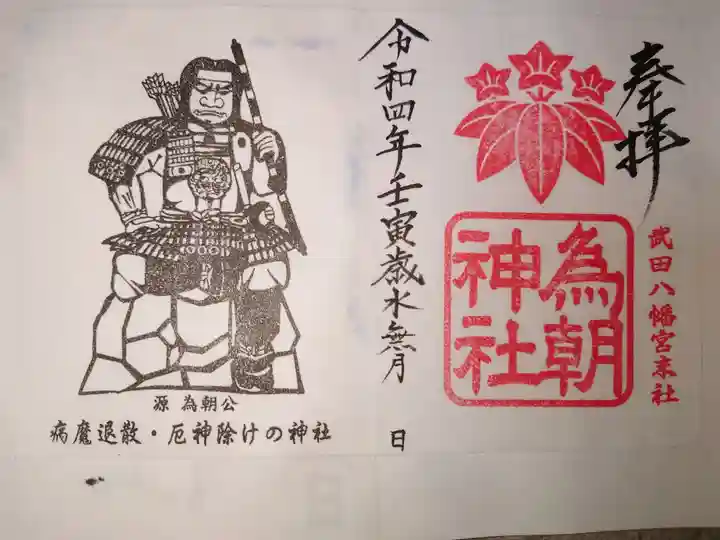 奉拝
武田八幡宮末社
為朝
神社
令和四年壬寅歳水無月 日
源 為朝公
病魔退散・厄神除けの神社